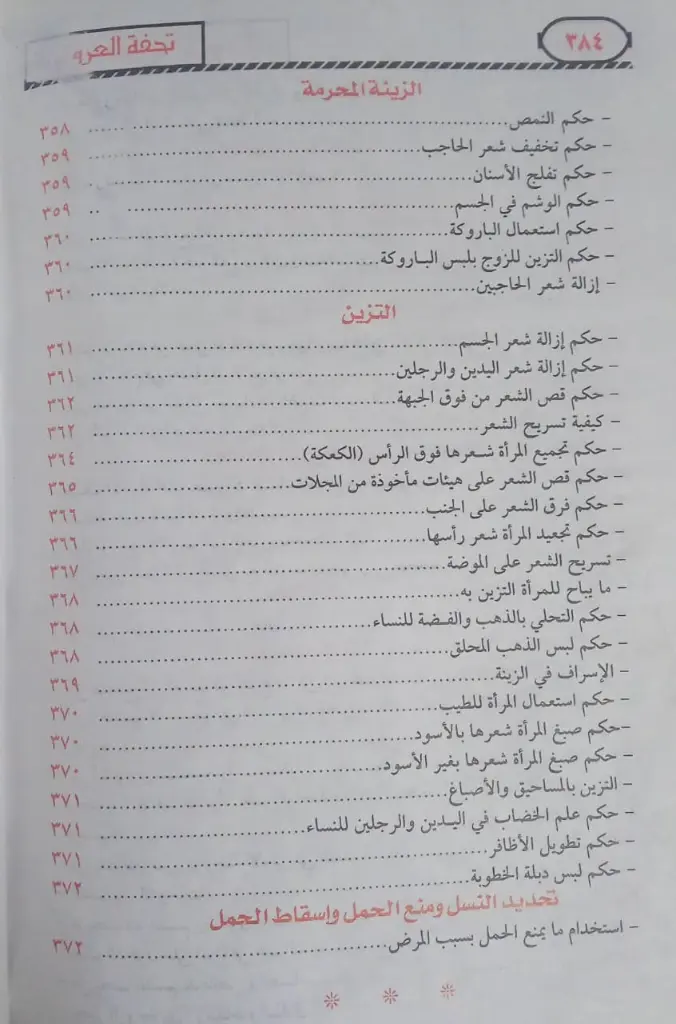 ٣٨٤
تحفة العرو
الزينة المحرمة
- حكم النمص ........ ٣٥٨
- حكم تخفيف شعر الحاجب ........ ٣٥٩
- حكم تفلج الأسنان ........ ٣٥٩
- حكم الوشم في الجسم ........ ٣٥٩
- حكم استعمال الباروكة ........ ٣٦٠
- حكم التزين للزوج بلبس الباروكة ........ ٣٦٠
- إزالة شعر الحاجبين ........ ٣٦٠
التزين
- حكم إزالة شعر الجسم ........ ٣٦١
- حكم إزالة شعر اليدين والرجلين ........ ٣٦١
- حكم قص الشعر من فوق الجبهة ........ ٣٦٢
- كيفية تسريح الشعر ........ ٣٦٢
- حكم تجميع المرأة شعرها فوق الرأس (الكعكة) ........ ٣٦٤
- حكم قص الشعر على هيئات مأخوذة من المجلات ........ ٣٦٥
- حكم فرق الشعر على الجنب ........ ٣٦٦
- حكم تجعيد المرأة شعر رأسها ........ ٣٦٦
- تسريح الشعر على الموضة ........ ٣٦٧
- ما يباح للمرأة التزين به ........ ٣٦٨
- حكم التحلي بالذهب والفضة للنساء ........ ٣٦٨
- حكم لبس الذهب المحلق ........ ٣٦٨
- الإسراف في الزينة ........ ٣٦٩
- حكم استعمال المرأة للطيب ........ ٣٧٠
-حكم صبغ المرأة شعرها بالأسود ........ ٣٧٠
- حكم صبغ المرأة شعرها بغير الأسود ........ ٣٧٠
- التزين بالمساحيق والأصباغ ........ ٣٧١
- حكم علم الخضاب في اليدين والرجلين للنساء ........ ٣٧١
- حكم تطويل الأظافر ........ ٣٧١
- حكم لبس دبلة الخطوبة ........ ٣٧٢
تحديد النسل ومنع الحمل وإسقاط الحمل
- استخدام ما يمنع الحمل بسبب المرض ........ ٣٧٢